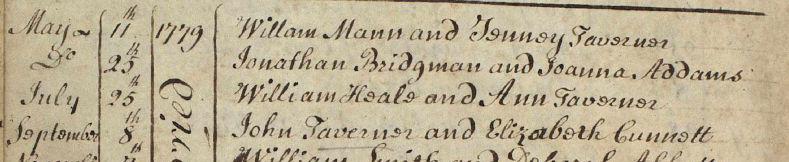 May 11th 1779 Willam Mann and Jenney Taverner
Do 25th Jonathan Bridgman and Joanna Addams
July 25th William Heale and Ann Taverner
September 8th John Taverner and Elizabeth Cunnett
William Smith and Deborah